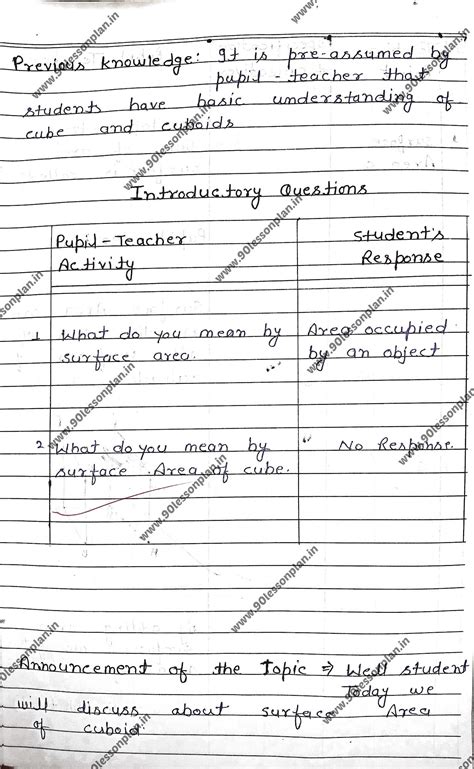 Previous knowledge: It is pre-assumed by
pupil - teacher that
students have basic understanding of
cube and cuboids
Introductory Questions
Pupil - Teacher
Activity
Student's
Response
1 What do you mean by
surface area.
Area occupied
by an object
2 What do you mean by
surface Area of cube.
No Response.
Announcement of the Topic ⇒ Well student
Today we
will discuss about surface Area
of cuboid.
www.90lessonplan.in